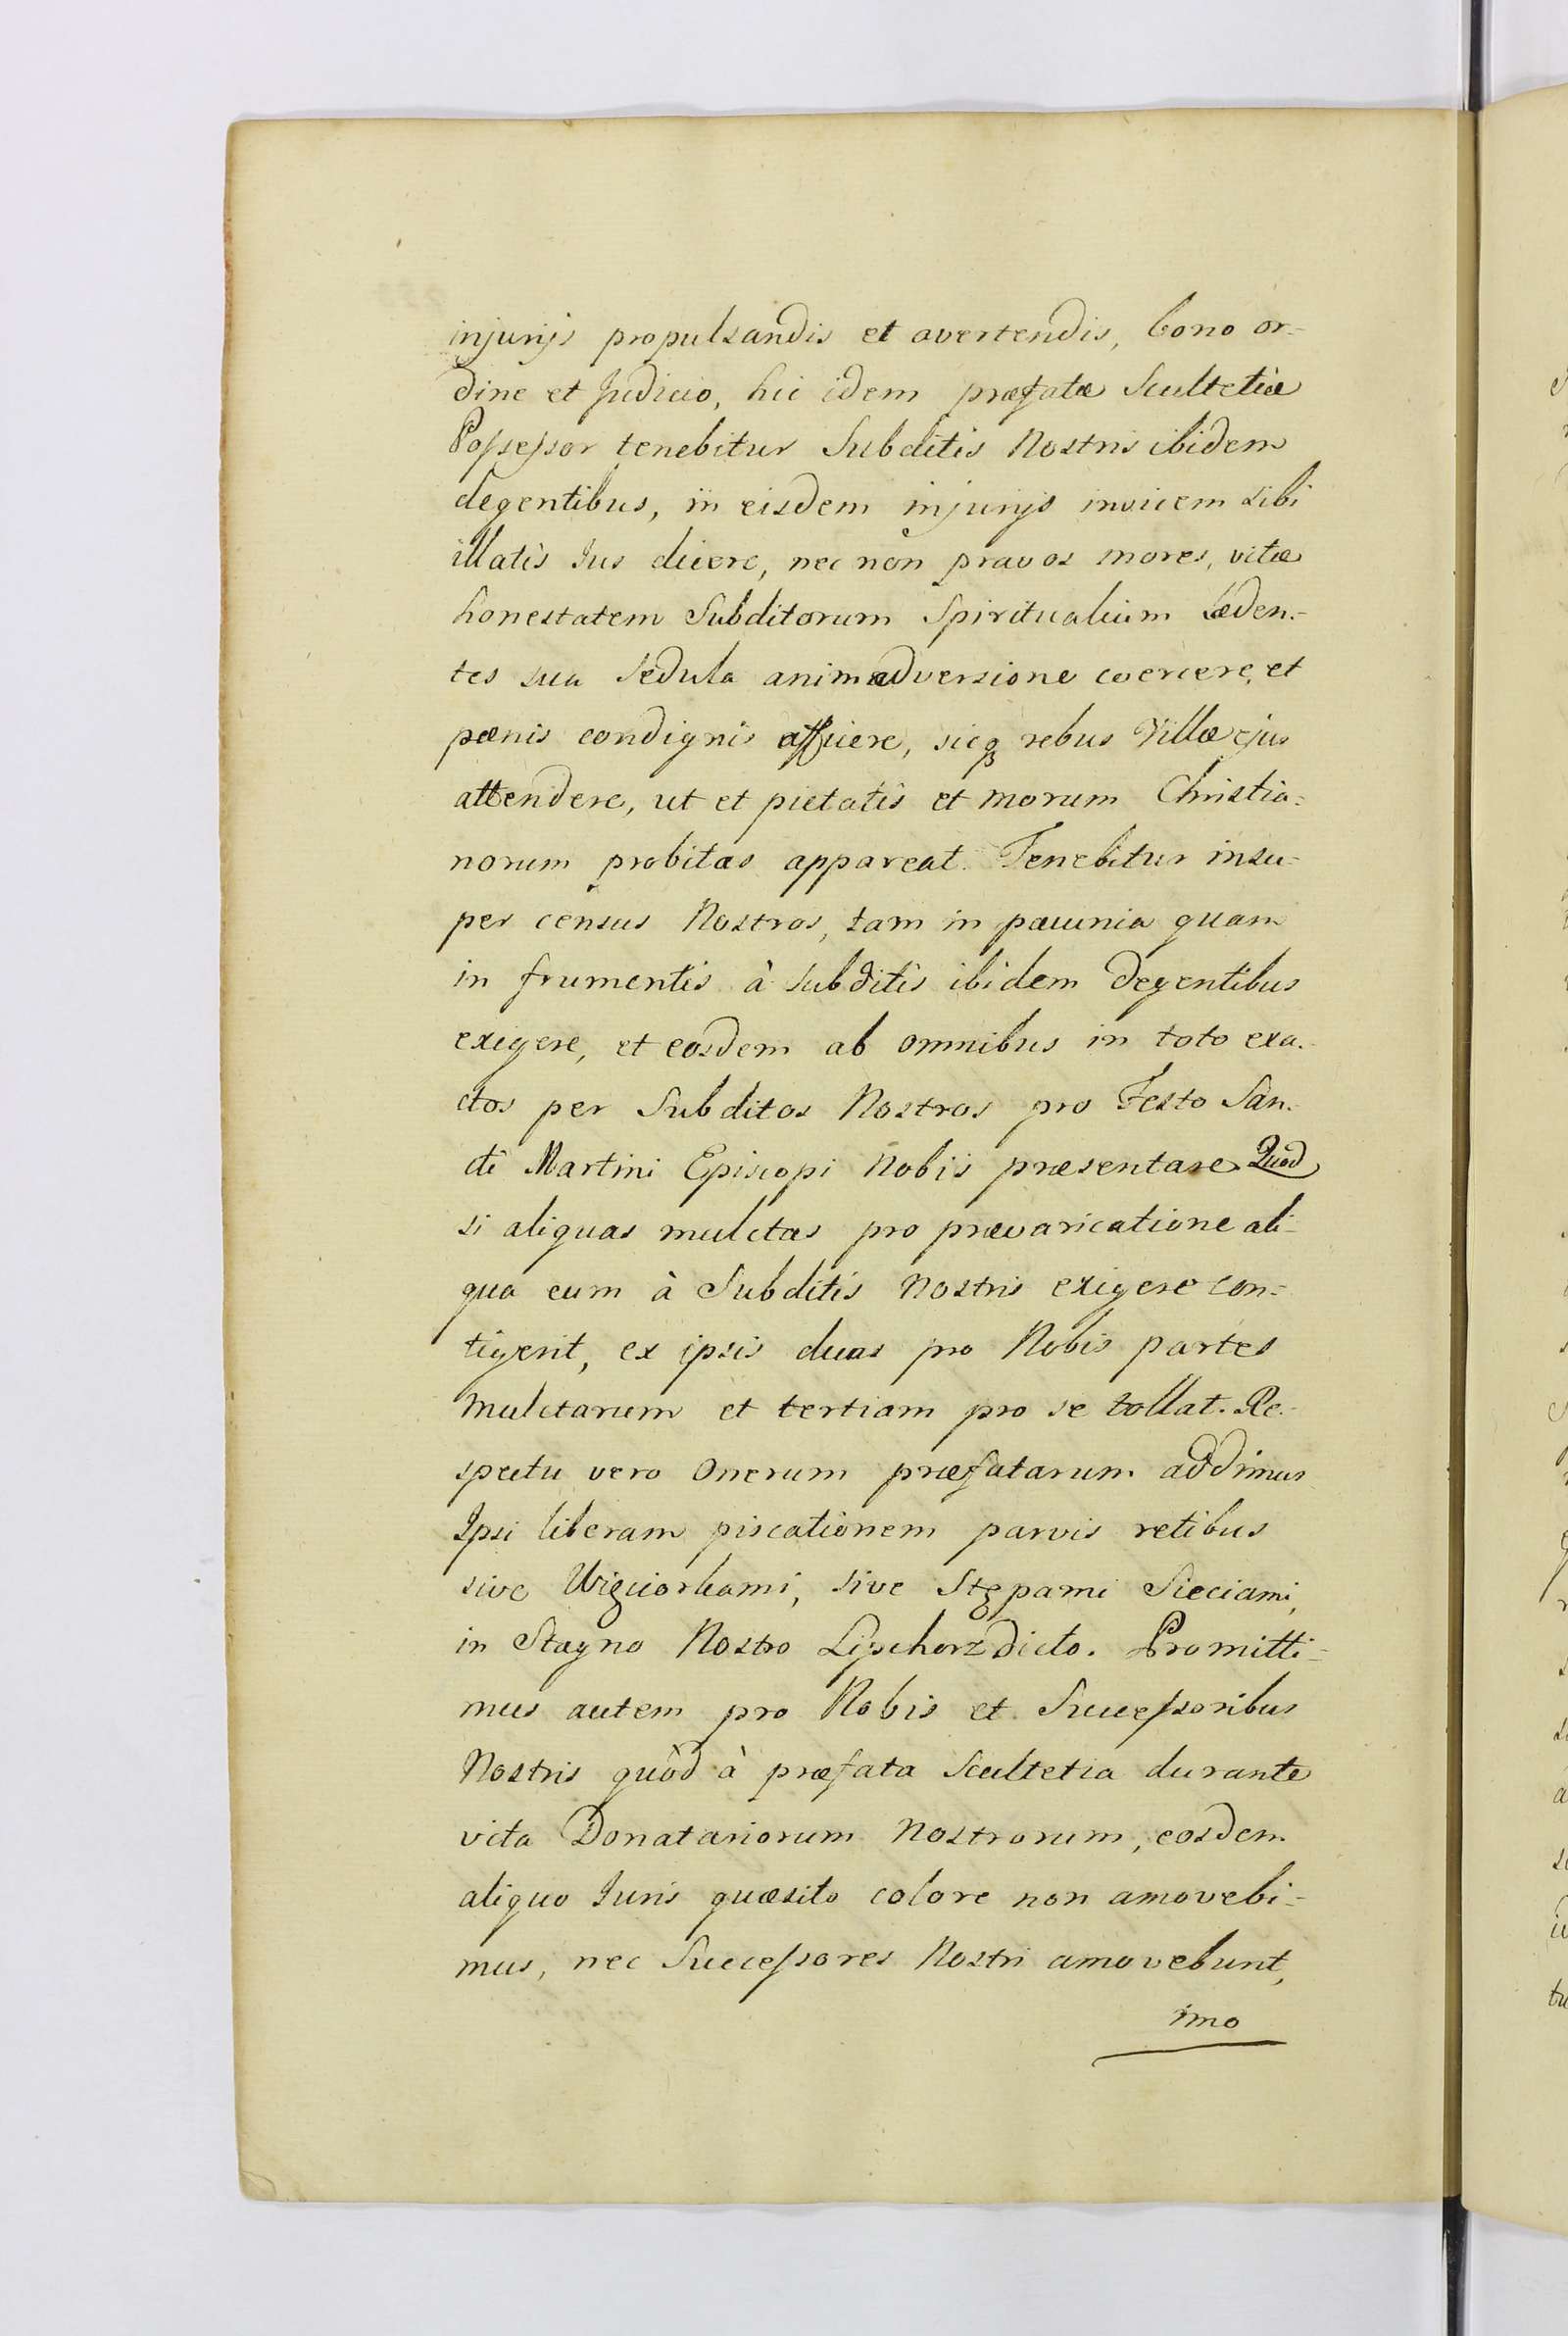 injurijs propulsandis et avertendis, bono or-
dine et Judicio, hic idem præfatæ Scultetiæ
Possessor tenebitur Subditis Nostris ibidem
degentibus, in eisdem injurijs invicem sibi
illatis Jus dicere, nec non pravos mores, vitæ
honestatem Subditorum Spiritualium læden-
tes sua sedula animadversione coercere, et
pænis condignis afficere, sicq rebus Villæ ejus
attendere, ut et pietatis et morum Christia-
norum probitas appareat. Tenebitur insu-
per census Nostros, tam in pæcunia quam
in frumentis à subditis ibidem degentibus
exigere, et eosdem ab omnibus in toto exa-
ctos per Subditos Nostros pro Festo San-
cti Martini Episcopi Nobis præsentare. Quod
si aliquas mulctas pro prævaricatione ali-
qua eum à Subditis Nostris exigere con-
tigerit, ex ipsis duas pro Nobis partes
mulctarum et tertiam pro se tollat. Re-
spectu vero Onerum præfatarum addimus
Ipsi liberam piscationem parvis retibus
sive Więciorkami, sive Stępami Sieciami,
in Stagno Nostro Lipchorz dicto. Promitti-
mus autem pro Nobis et Successoribus
Nostris quòd à præfata Scultetia durante
vita Donatariorum Nostrorum, eosdem
aliquo Juris quæsito colore non amovebi-
mus, nec Successores Nostri amovebunt,
imo